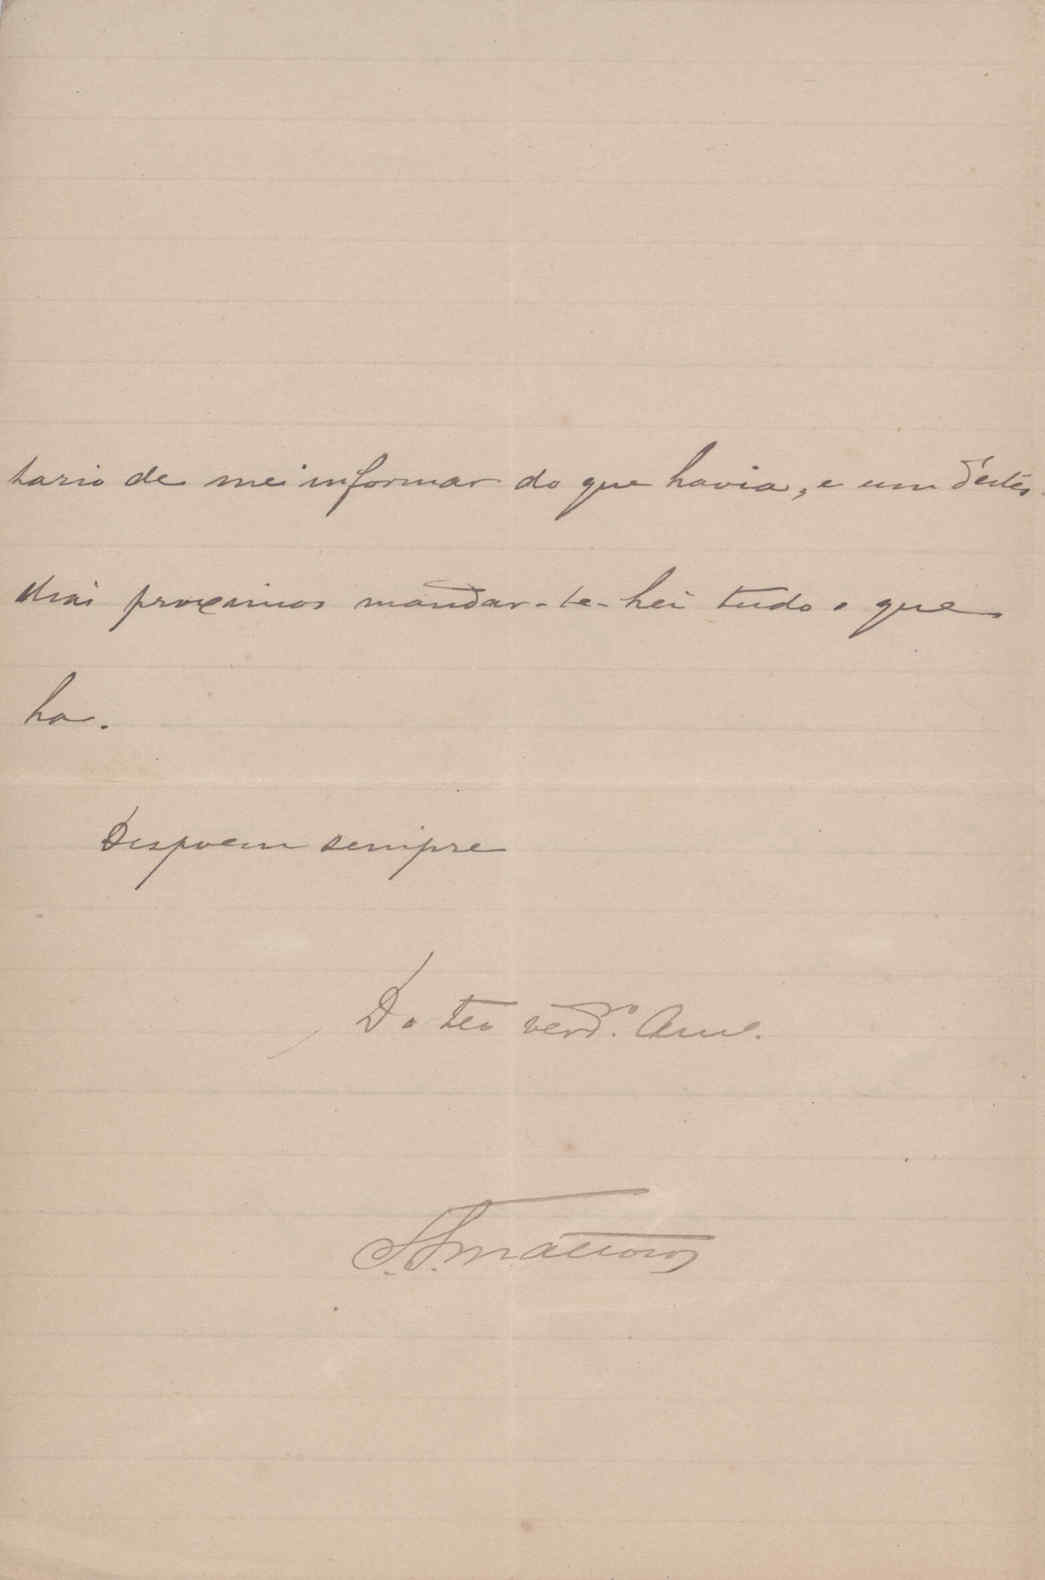 tario de me informar do que havia, e um d'estes
dias proximos mandar-te-hei tudo o que
ha.
Dispoem sempre
Do teu verd.º Am.º